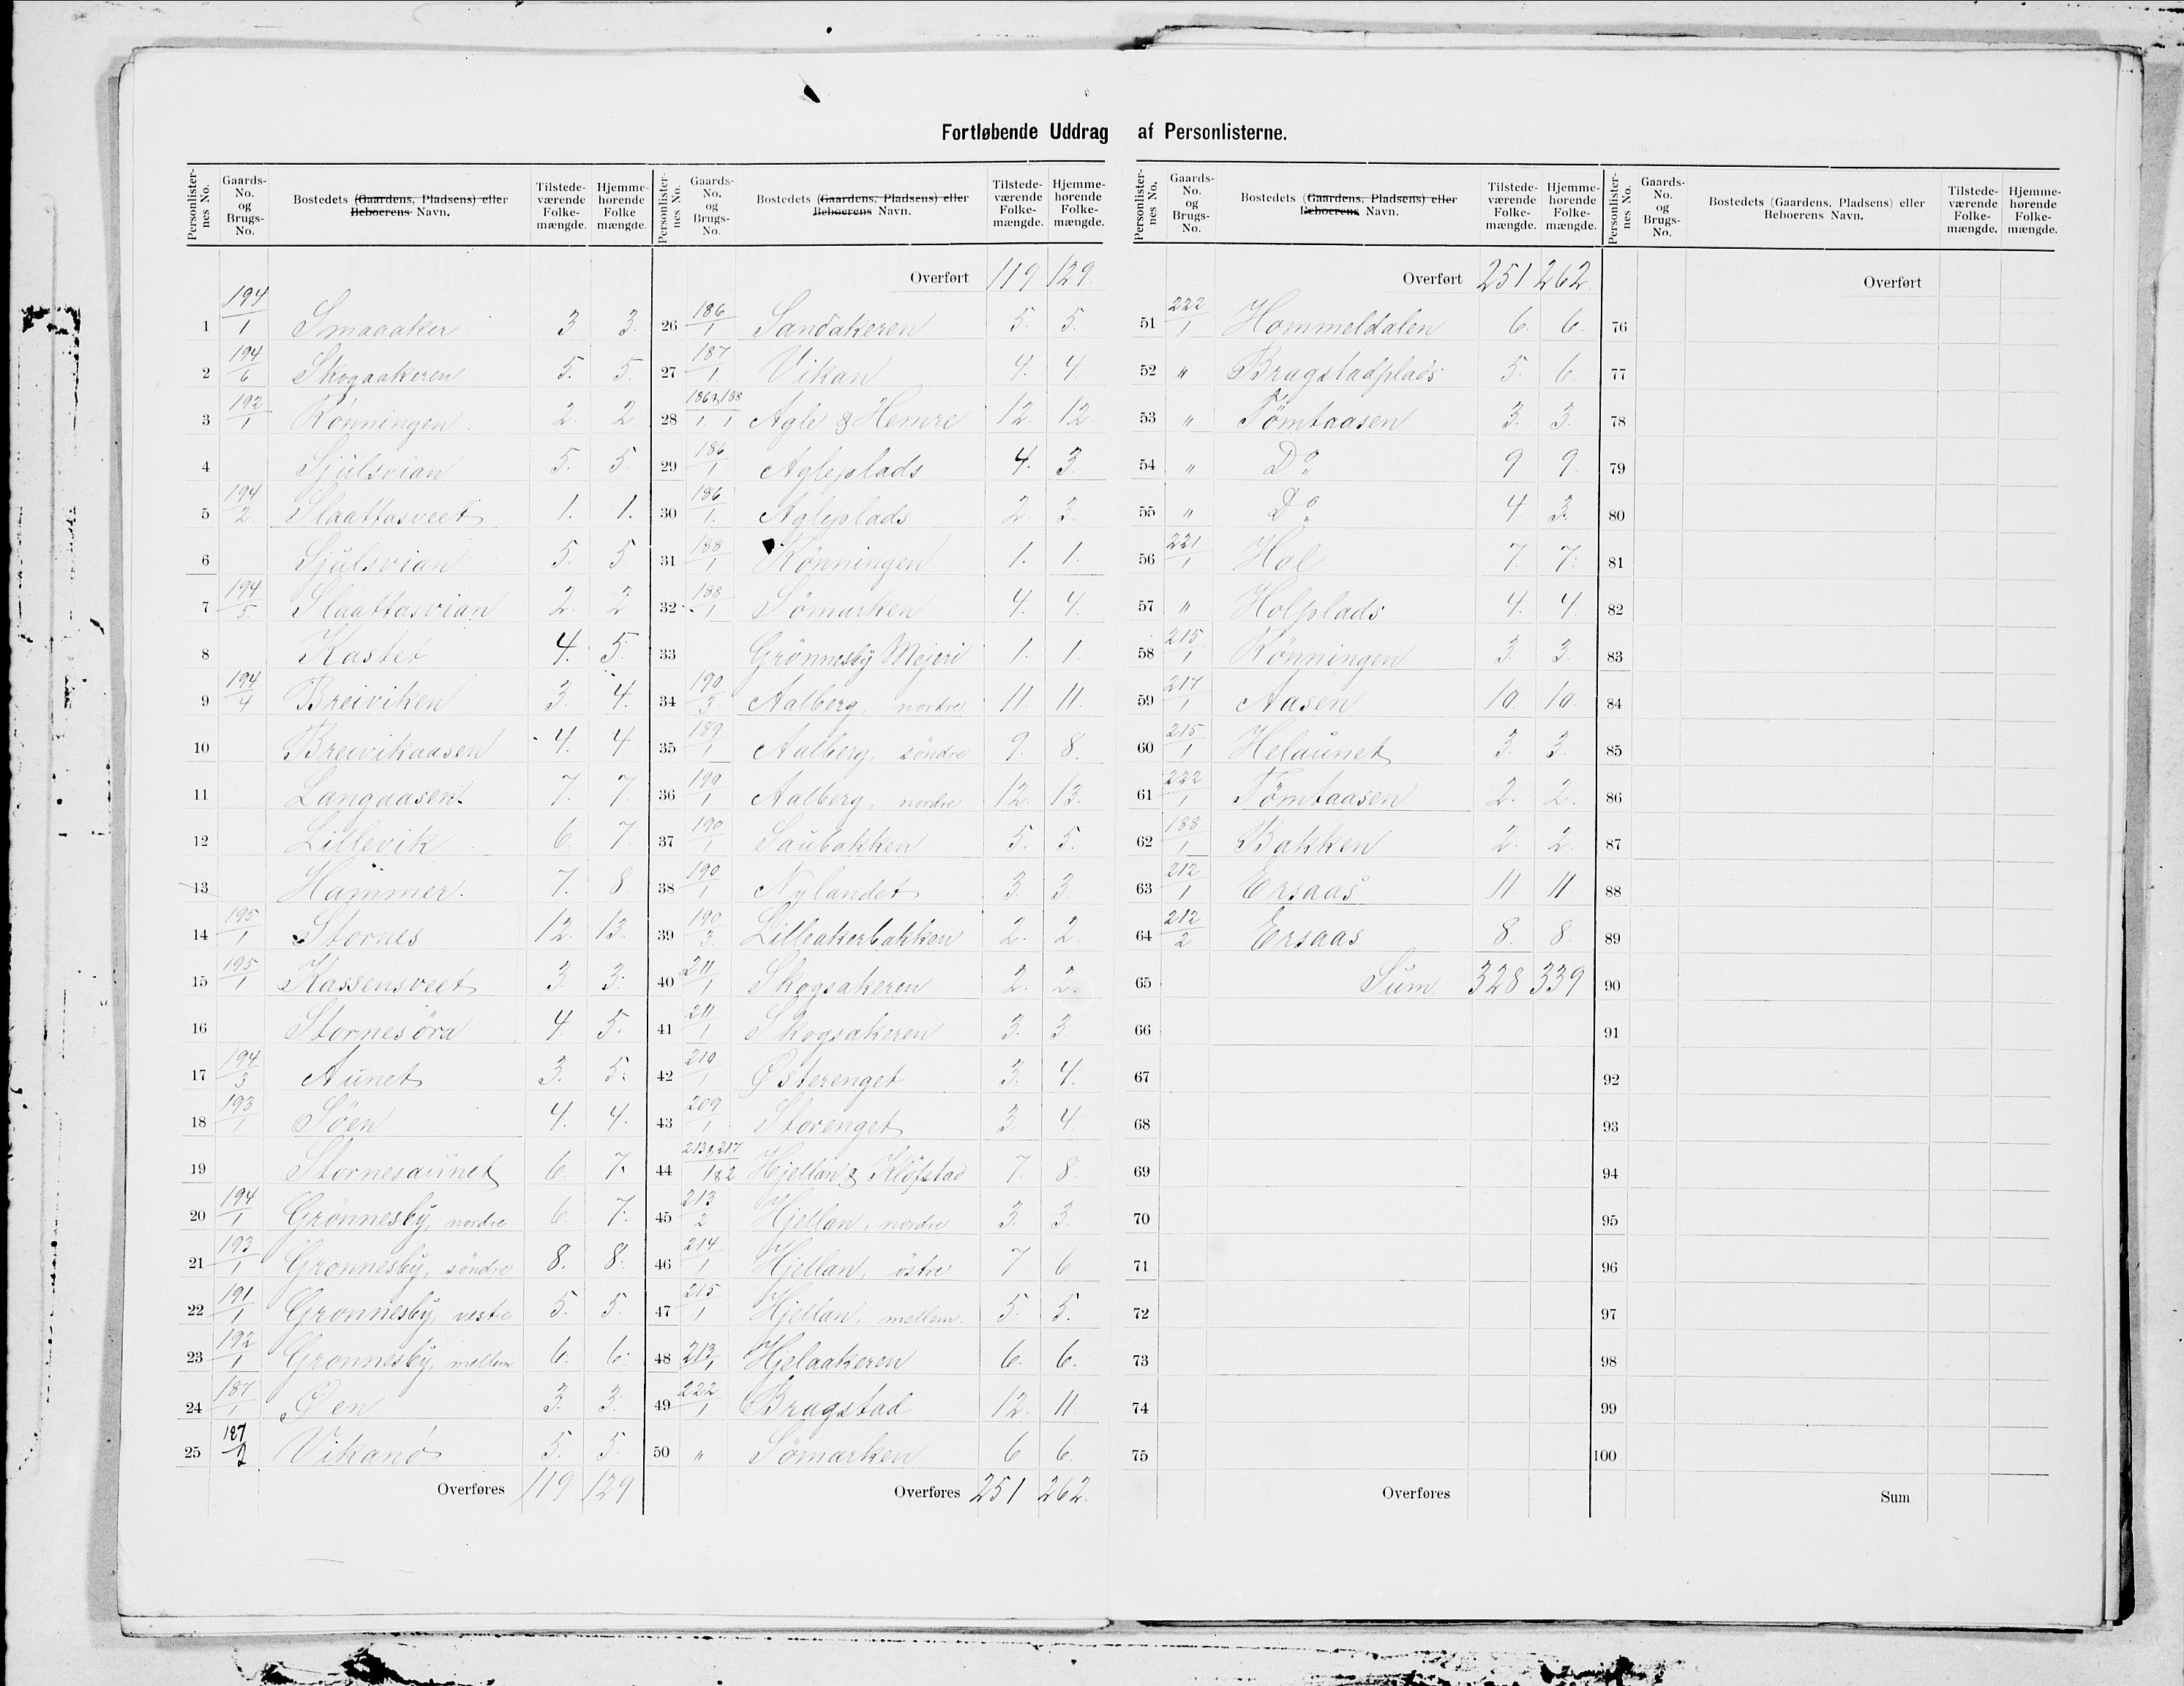 Fortløbende Uddrag af Personlisterne.
Personlister-nes No. Gaards-No. og Brugs-No. Bostedets (Gaardens, Pladsens) eller Beboerens Navn. Tilstede-værende Folke-mængde. Hjemme-hørende Folke mængde.
1 194/1 Smaaaker 3 3.
2 194/6 Skogaakeren 5. 5.
3 192/1 Rønningen 2. 2
4 Sjulsvian 5. 5.
5 194/2 Slaattasveet 1. 1.
6 Sjulsvian 5. 5
7 194/5 Slaattasvian 2. 2
8 Kastet 4. 5.
9 194/4 Breiviken 3. 4.
10 Breivikaasen 4. 4
11 Langaasen. 7. 7.
12 Lillevik 6. 7
13 Hammer. 7. 8
14 195/1 Stornes 12. 13.
15 195/1 Kassensveet 3. 3.
16 Stornesöra 4. 5.
17 194/3 Aunet 3. 5.
18 193/1 Söen 4. 4.
19 Stornesaunet 6. 7.
20 194/1 Grönnesby, nordre 6. 7.
21 193/1 Grönnesby, söndre 8. 8.
22 191/1 Grönnesby, vestre 5. 5.
23 192/1 Grönnesby, mellem 6. 6.
24 187/1 Øen 3. 3.
25 187/2 Vikanö 5. 5.
Overføres 119 129
Personlister-nes No. Gaards-No. og Brugs-No. Bostedets (Gaardens, Pladsens) eller Beboerens Navn. Tilstede-værende Folke-mængde. Hjemme-hørende Folke-mængde.
Overført 119 129.
26 186/1 Sandakeren 5. 5.
27 187/1. Vikan 4. 4.
28 186 & 188/1. 1 Agle & Hemre 12. 12.
29 186/1 Agleplads 4. 3.
30 186/1. Agleplads 2. 3.
31 188/1 Rönningen 1. 1.
32 188/1 Sömarken 4. 4.
33 Grönnesby Mejeri 1. 1.
34 190/3. Aalberg, nordre 11. 11.
35 189/1 Aalberg, söndre 9. 8.
36 190/1 Aalberg, nordre 12. 13.
37 190/1 Saubakken 5. 5.
38 190/1 Nylandet 3. 3.
39 190/3. Lilleakerbakken 2. 2.
40 211/1 Skogsakeren 2. 2.
41 211/1 Skogsakeren 3. 3
42 210/1 Østerenget 3. 4.
43 209/1 Storenget 3. 4.
44 213 & 217/1 & 2 Hjellan & Klöfstad 7. 8.
45 213/2 Hjellan, nordre 3. 3.
46 214/1 Hjellan, östre 7 6
47 215/1 Hjellan, mellem. 5. 5.
48 213/1 Hjelaakeren 6. 6.
49 222/1 Brugstad 12. 11.
50 " Sömarken 6 6.
Overføres 251 262.
Personlister-nes No. Gaards-No. og Brugs-No. Bostedets (Gaardens, Pladsens) eller Beboerens Navn. Tilstede-værende Folke-mængde. Hjemme-hørende Folke-mængde.
Overført 251 262.
51 222/1 Hommeldalen 6. 6.
52 " Brugstadplads 5. 6.
53 " Tömtaasen 3. 3.
54 " Do 9 9.
55 " Do 4 3.
56 221/1 Hol 7. 7.
57 " Holplads 4. 4.
58 215/1 Rönningen 3. 3.
59 217/1 Aasen 10. 10.
60 215/1 Helaunet 3. 3.
61 222/1 Tömtaasen 2. 2.
62 188/1 Bakken 2. 2.
63 212/1 Ersaas 11 11.
64 212/2 Ersaas 8. 8.
65 Sum. 328 339
66
67
68
69
70
71
72
73
74
75
Overføres
Personlister-nes No. Gaards-No. og Brugs-No. Bostedets (Gaardens, Pladsens) eller Beboerens Navn. Tilstede-værende Folke-mængde. Hjemme-hørende Folke-mængde.
Overført
76
77
78
79
80
81
82
83
84
85
86
87
88
89
90
91
92
93
94
95
96
97
98
99
100
Sum